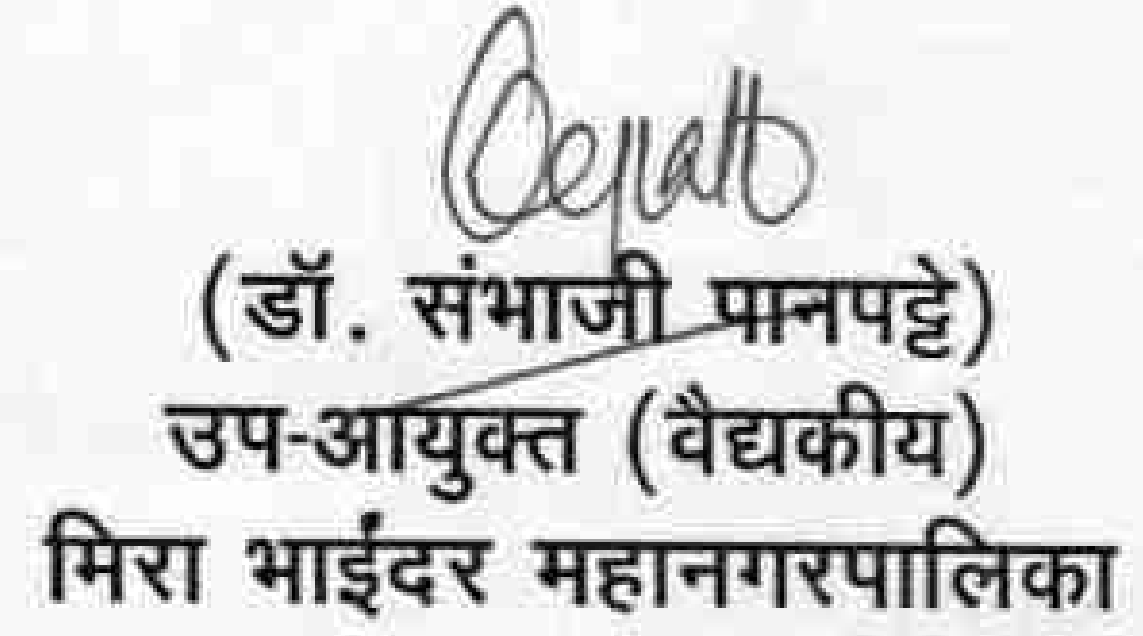 (डॉ. संभाजी पानपट्टे)
उप-आयुक्त (वैद्यकीय)
मिरा भाईंदर महानगरपालिका